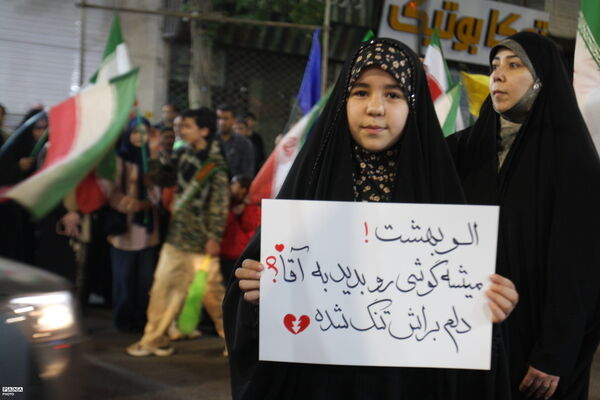 تکا بوتیک
الو بهشت!
میشه گوشی رو بدید به آقا؟
دلم براش تنگ شده
PANA
PHOTO